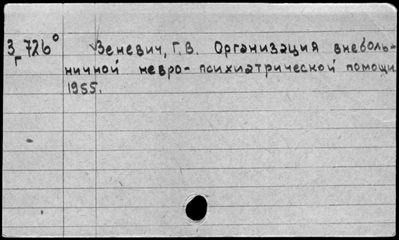 З 726° Зеневич, Г.В. Организация внеболь-
г ничной невро-психиатрической помощи
1955.